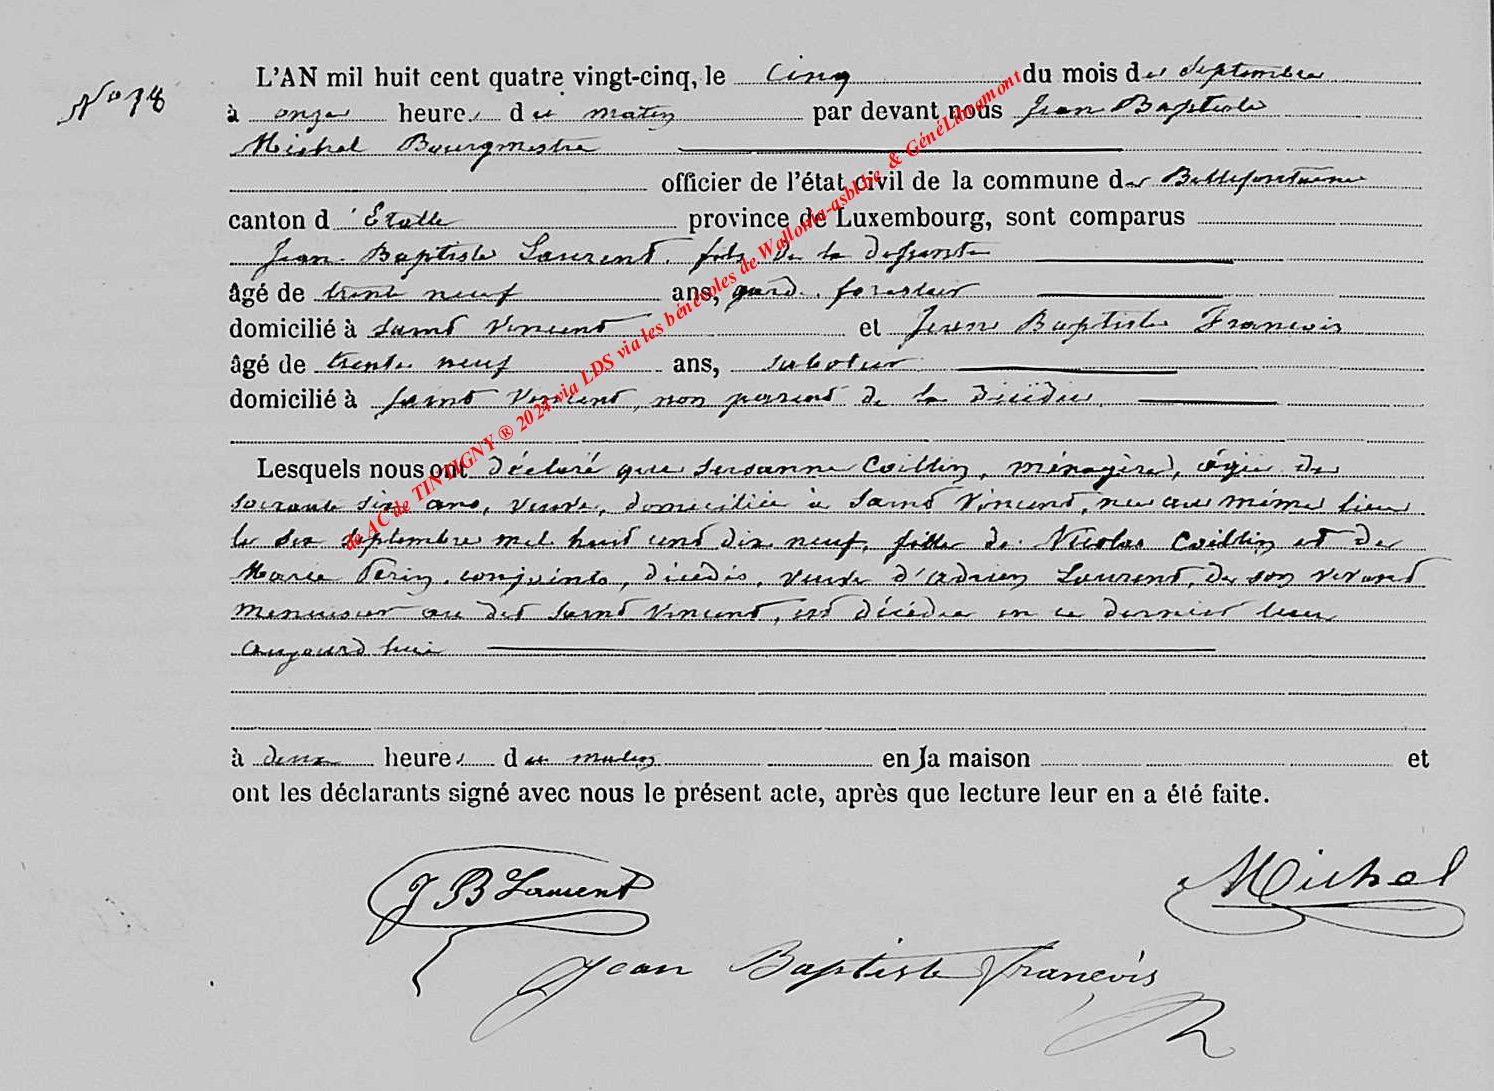 N° 78
L'AN mil huit cent quatre vingt-cinq, le cinq du mois de Septembre
à onze heures du matin par devant nous Jean Baptiste
Michel Bourgmestre
officier de l'état civil de la commune de Bellefontaine
canton d'Etalle province de Luxembourg, sont comparus
Jean-Baptiste Laurent, fils de la défunte
âgé de trente neuf ans, garde forestier
domicilié à Saint Vincent et Jean Baptiste François
âgé de trente neuf ans, sabotier
domicilié à Saint Vincent, non parent de la décédée,
Lesquels nous ont déclaré que Susanne Collin, ménagère, âgée de
soixante six ans, veuve, domiciliée à Saint Vincent, née au même lieu
le six septembre mil huit cent dix neuf, fille de Nicolas Collin et de
Marie Perin, conjoints, décédés, veuve d'Adrien Laurent, de son vivant
menuisier au dit Saint Vincent, est décédée en ce dernier lieu
aujourd'hui
à deux heures du matin en la maison et
ont les déclarants signé avec nous le présent acte, après que lecture leur en a été faite.
de AC de TINTIGNY ® 2024 via LDS via les bénévoles de Wallonia-asbl.be & GénéLibramont
J B Laurent
Michel
Jean Baptiste François